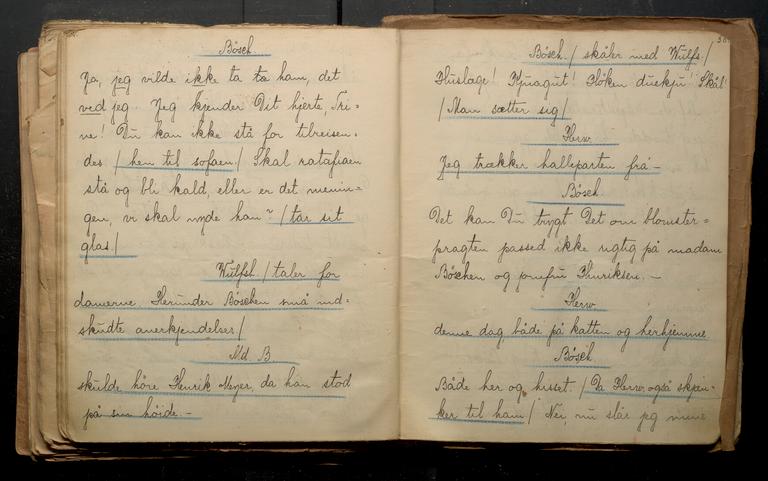 Bösch.
Ja, jeg vilde ikke ta ta ham, det
ved jeg. Jeg kjender Dit hjerte, Tri-
ne! Du kan ikke stå for tilreisen-
des / hen til sofaen / Skal ratafiaen
stå og bli kald, eller er det menin-
gen, vi skal nyde ham? / tar sit
glas /
Wulfst. / taler for
damerne Herunder Böschen små ind-
skudte anerkjendelser /
Md B.
skulde höre Henrik Meyer, da han stod
på sin höide. -
Bösch. / skåler med Wulfs. /
Pluslage! Skål!
/ Man sætter sig /
Herw.
Jeg trækker halleparten frá -
Bösch.
Det kan Du trygt Det om blomster=
pragten passed ikke rigtig på madam
Böschen og jomfru Henriksen. -
Herw.
denne dag både på katten og herhjemme
Bösch.
Både her og hisset. / Da Herw. også skjæn-
ker til ham / Nei, nu slår jeg mine